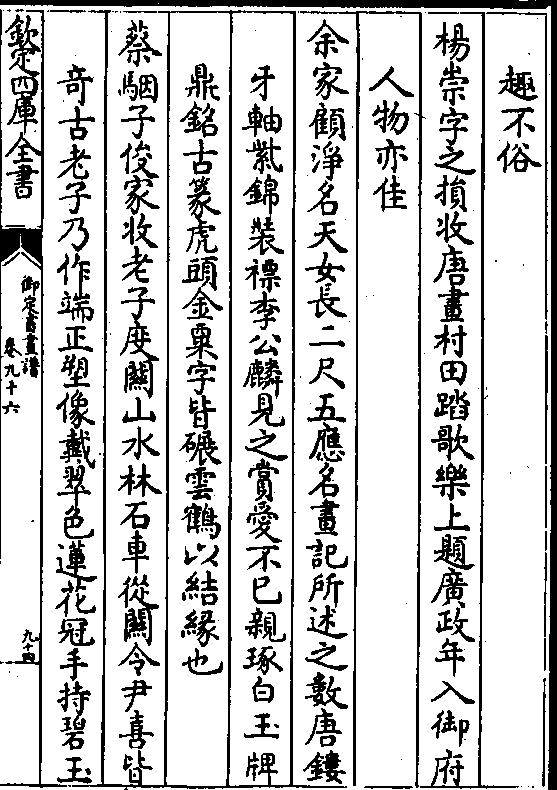 趣不俗
楊崇字之損收唐畫村田踏歌樂上題廣政年入御府
人物亦佳
余家顧淨名天女長二尺五應名畫記所述之數唐鏤
牙軸紫錦裝褾李公麟見之賞愛不已親琢白玉牌
鼎銘古篆虎頭金粟字皆碾雲鶴以結緣也
蔡駰子俊家收老子度關山水林石車從關令尹喜皆
奇古老子乃作端正塑像戴翠色蓮花冠手持碧玉
欽定四庫全書
御定書畫譜
卷九十六
九十四